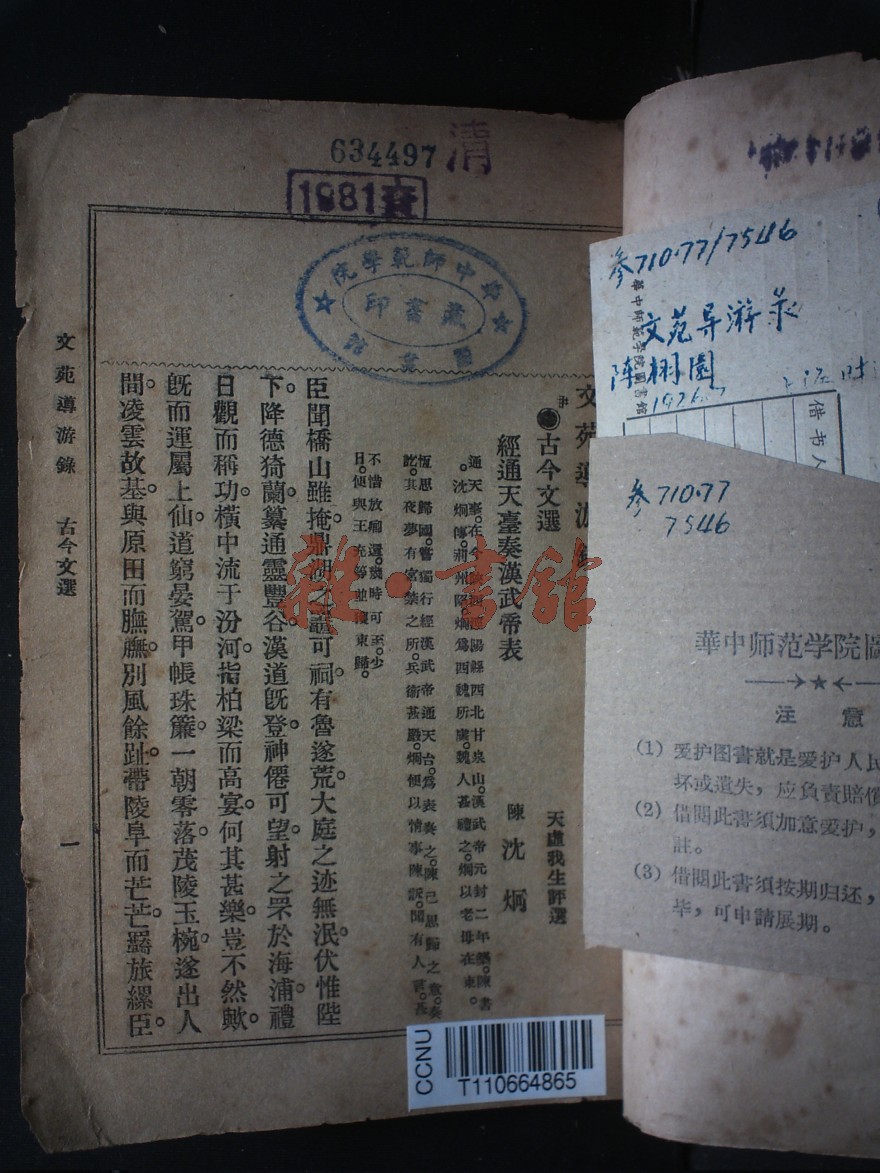 634497
清
1981查
華中師範學院
圖書館
藏書印
文苑導游錄
古今文選
天虛我生評選
經通天臺奏漢武帝表
陳 沈炯
通天臺。在今陝西涇陽縣西北甘泉山。漢武帝元封二年築。陳書
。沈炯傳。荊州陷。炯為西魏所虜。魏人甚禮之。炯以老母在東。
恆思歸國。嘗獨行經漢武帝通天台。為表奏之。陳己思歸之意。奏
訖。其夜夢有宮禁之所。兵衛甚嚴。炯便以情事陳訴。聞有人言。吾
不惜放卿還。幾時可至。少
日。便與王克等並獲東歸。
臣聞橋山雖掩。鼎湖之竈可祠。有魯遂荒。大庭之迹無泯。伏惟陛
下。降德猗蘭。纂通靈豐谷。漢道旣登。神僊可望。射之罘於海浦。禮
日觀而稱功。橫中流于汾河。指柏梁而高宴。何其甚樂。豈不然歟。
旣而運屬上仙。道窮晏駕。甲帳珠簾。一朝零落。茂陵玉椀。遂出人
間。凌雲故基。與原田而膴膴。別風餘趾。帶陵阜而芒芒。羇旅縲臣。
文苑導游錄 古今文選 一
雜·書館
CCNU
T110664865
参710.77/7546
文苑导游录
陈栩園
1926.
華中師範学院圖書館
借书人
参710.77
7546
華中师范学院圖
注 意
(1) 爱护图書就是爱护人民
坏或遺失，应負責賠償
(2) 借閱此書須加意爱护，
註。
(3) 借閱此書須按期归还，
毕，可申請展期。